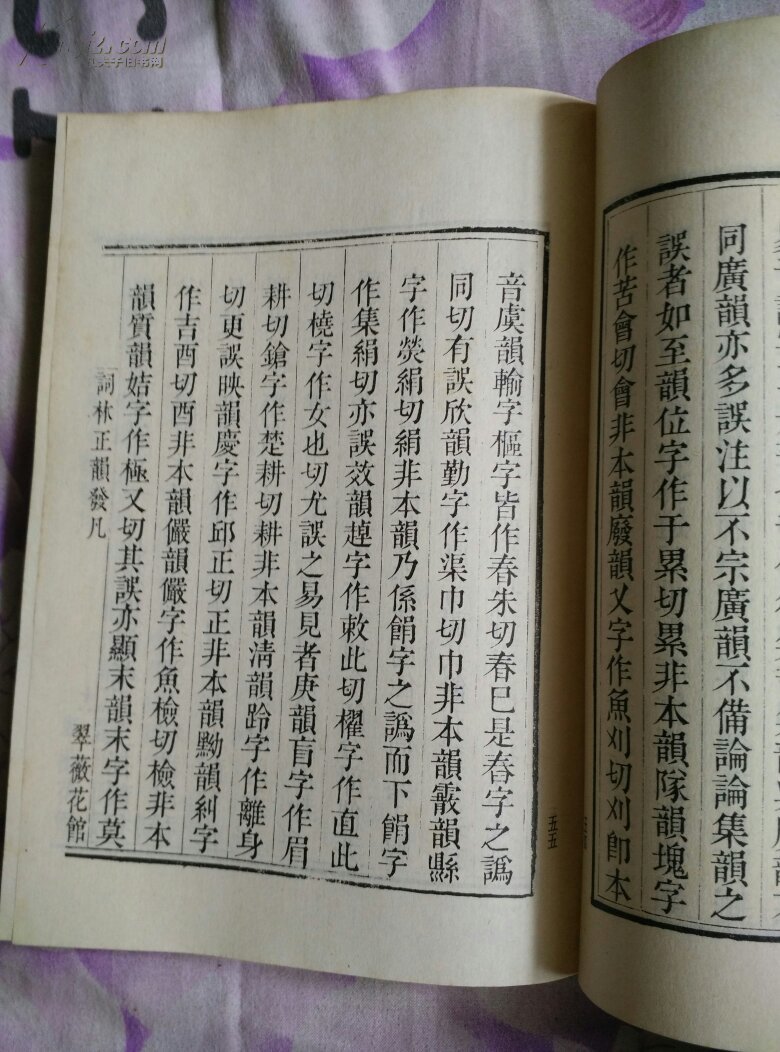 同廣韻亦多誤注以不宗廣韻不備論論集韻之
誤者如至韻位字作于累切累非本韻隊韻塊字
作苦會切會非本韻廢韻乂字作魚刈切刈卽本
音虞韻輸字樞字皆作春朱切春巳是舂字之譌
同切有誤欣韻勤字作渠巾切巾非本韻霰韻縣
字作熒絹切絹非本韻乃係餶字之譌而下餶字
作集絹切亦誤效韻趠字作敕此切櫂字作直此
切橈字作女也切尤誤之易見者庚韻盲字作眉
耕切鎗字作楚耕切耕非本韻淸韻跉字作離身
切更誤映韻慶字作邱正切正非本韻黝韻糾字
作吉酉切酉非本韻儼韻儼字作魚檢切檢非本
韻質韻姞字作極乂切其誤亦顯末韻末字作莫
詞林正韻發凡
翠薇花館
五五
孔夫子旧书网